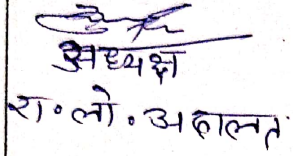 अध्यक्ष
रा॰लो॰अदालत